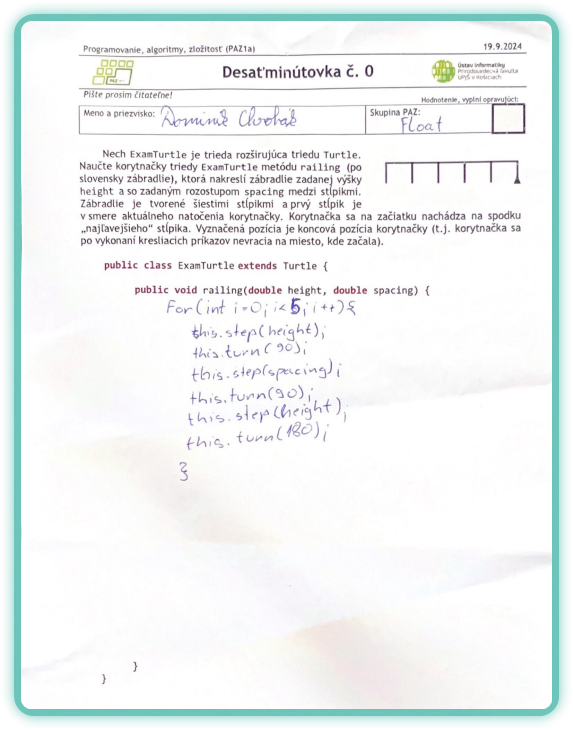 Programovanie, algoritmy, zložitosť (PAZ1a)
19.9.2024
Desaťminútovka č. 0
Ústav informatiky
Prírodovedecká fakulta
UPJŠ v Košiciach
Píšte prosím čitateľne!
Hodnotenie, vyplní opravujúci:
Meno a priezvisko: Dominik
Skupina PAZ:
Float
Nech ExamTurtle je trieda rozširujúca triedu Turtle.
Naučte korytnačky triedy ExamTurtle metódu railing (po
slovensky zábradlie), ktorá nakreslí zábradlie zadanej výšky
height a so zadaným rozostupom spacing medzi stĺpikmi.
Zábradlie je tvorené šiestimi stĺpikmi a prvý stĺpik je
v smere aktuálneho natočenia korytnačky. Korytnačka sa na začiatku nachádza na spodku
„najľavejšieho“ stĺpika. Vyznačená pozícia je koncová pozícia korytnačky (t.j. korytnačka sa
po vykonaní kresliacich príkazov nevracia na miesto, kde začala).
public class ExamTurtle extends Turtle {
public void railing(double height, double spacing) {
For(int i=0; i<5; i++){
this.step(height);
this.turn(90);
this.step(spacing);
this.turn(90);
this.step(height);
this.turn(180);
}
}
}